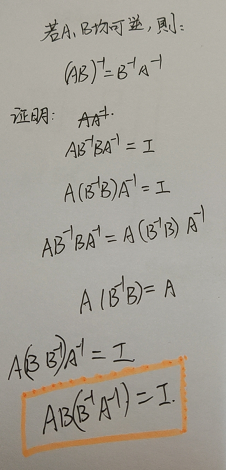 若A、B均可逆,则:
(AB)⁻¹=B⁻¹A⁻¹
证明: AA⁻¹.
AB⁻¹BA⁻¹ = I
A(B⁻¹B)A⁻¹ = I
AB⁻¹BA⁻¹ = A(B⁻¹B) A⁻¹
A (B⁻¹B)= A
A(B B⁻¹)A⁻¹ = I
AB(B⁻¹A⁻¹) = I.